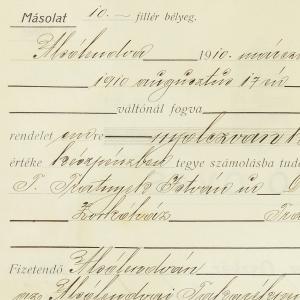 Másolat 10.— fillér bélyeg.
Alsólendva 1910. március
1910 augusztus 17-én
váltónál fogva
rendelet emre nyolczvan
értéke készpénzben tegye számolásba tud
T. Tratnyek István úr
Zorkóház
Fizetendő Alsólendván
az Alsólendvai Takarékpén